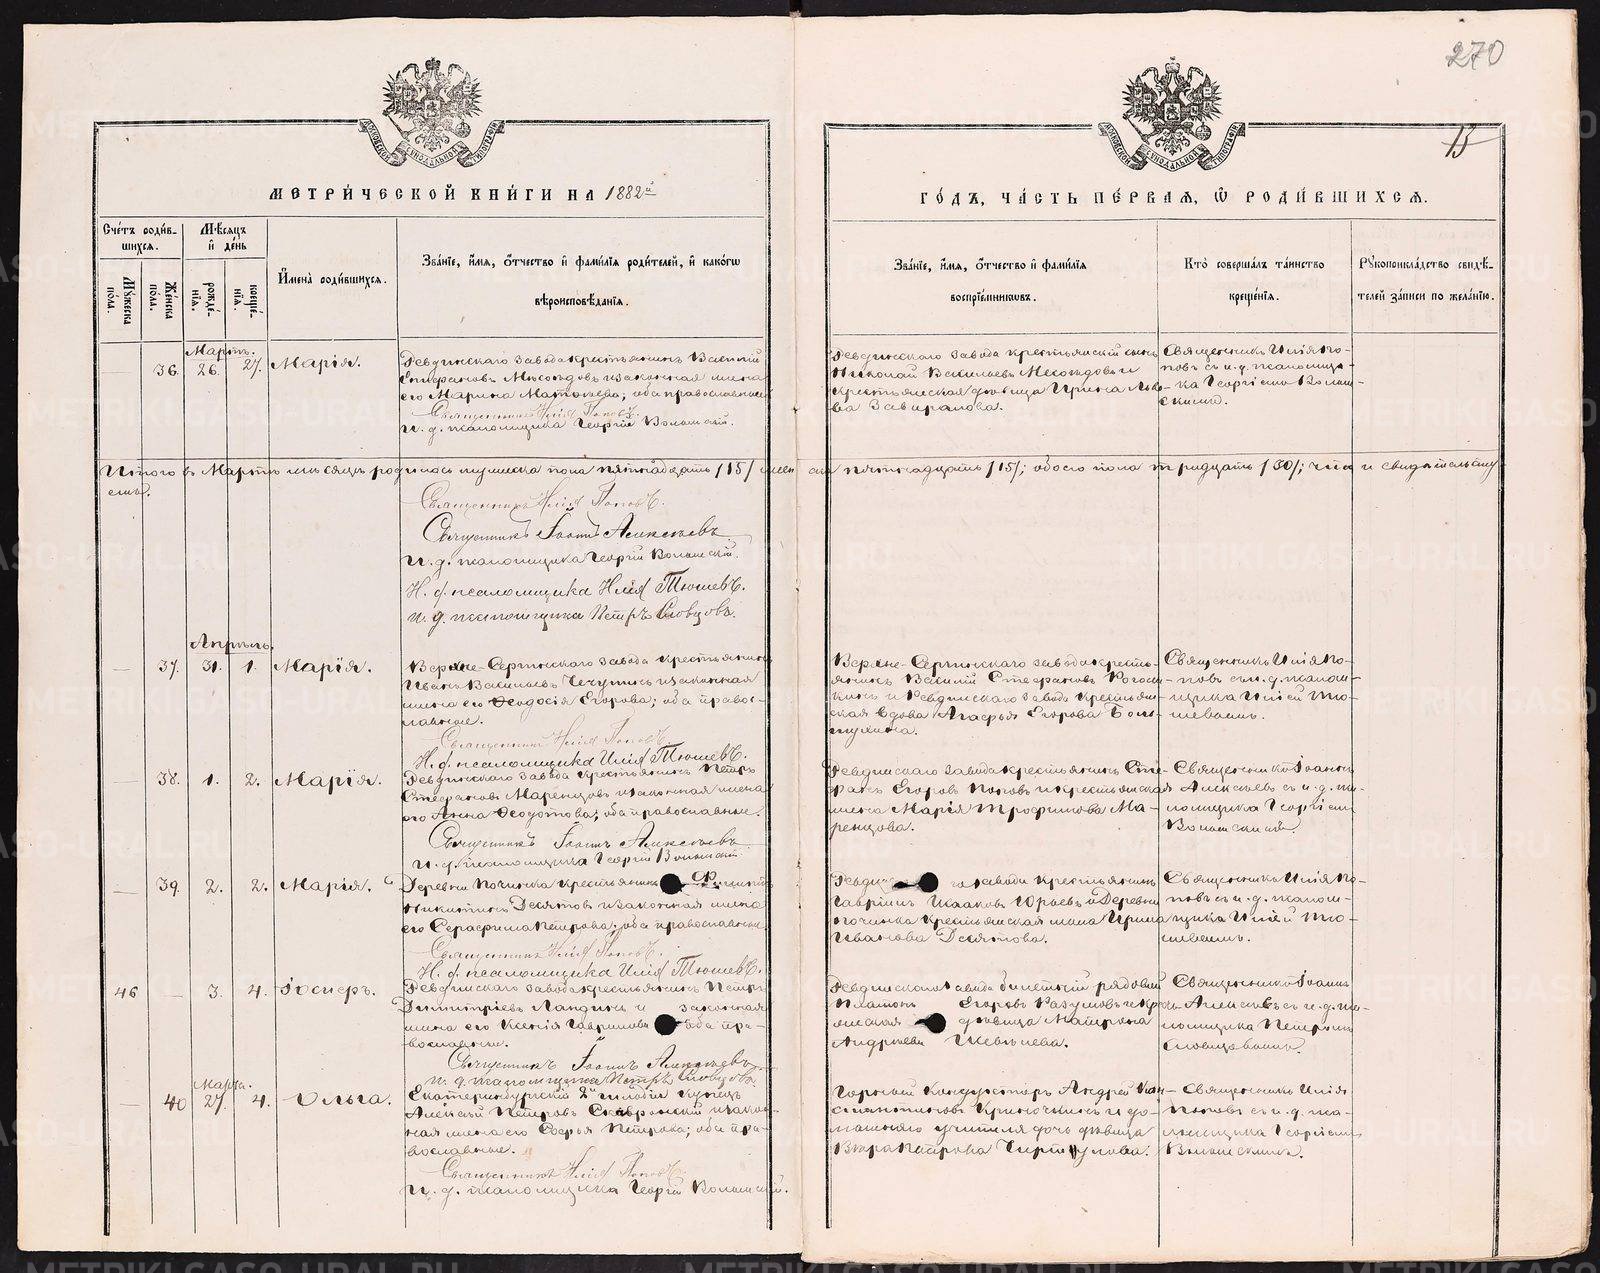 270
13
МОСКОВСКОЙ СѴНОДАЛЬНОЙ ТИПОГРАФІИ
МОСКОВСКОЙ СѴНОДАЛЬНОЙ ТИПОГРАФІИ
МЕТРИ́ЧЕСКОЙ КНИ́ГИ НА 1882й
ГО́ДЪ, ЧА́СТЬ ПЕ́РВАЯ, Ѡ РОДИ́ВШИХСЯ.
Сче́тъ роди́в-
шихся.
Мꙋжеска по́ла.
Же́нска по́ла.
Мѣсяцъ и҆ де́нь
рожде́-нїя.
креще́-нїя.
И҆мена̀ роди́вшихся.
Зва́нїе, и҆́мя, ѻ҆́тчество и҆ фами́лїя роди́телей, и҆ како́гѡ
вѣроисповѣ́данїя.
Зва́нїе, и҆́мя, ѻ҆́тчество и҆ фами́лїя
воспрїе́мникѡвъ.
Кто̀ соверша́лъ та́инство
креще́нїя.
Рꙋкоприкла́дство свидѣ́-
телей за́писи по жела́нїю.
Мартъ.
36. 26. 27. Марія.
Ревдинскаго завода крестьянинъ Василій
Стефановъ Мисоѣдовъ и законная жена
его Марина Матѳеева; оба православные
Священникъ Илія Поповъ.
И. д. псаломщика Георгій Волынскій.
Ревдинскаго завода крестьянскій сынъ
Николай Васильевъ Месоѣдовъ и
крестьянская дѣвица Ирина Льво-
ва Завиралова.
Священникъ Илія По-
повъ съ и. д. псаломщи-
ка Георгіемъ Волын-
скимъ.
Итого въ Мартѣ мѣсяцѣ родилось мужеска пола пятнадцать /15/ жен ска пятнадцать /15/; обоего пола тридцать /30/; что и свидѣтельству-
емъ.
Священникъ Илія Поповъ.
Священникъ Іоаннъ Алексѣевъ
И. д. псаломщика Георгій Волынскій.
И. д. псаломщика Илія Тюшевъ.
И. д. псаломщика Петръ Словцовъ.
Апрѣль.
37. 31. 1. Марія.
Верхне-Сергинскаго завода крестьянинъ
Иванъ Васильевъ Чечулинъ и законная
жена его Ѳеодосія Егорова; оба право-
славные.
Священникъ Илія Поповъ.
И. д. псаломщика Илія Тюшевъ.
Верхне-Сергинскаго завода кресть-
янинъ Василій Стефановъ
и Ревдинскаго завода крестьян-
ская вдова Агафья Егорова
Священникъ Илія По-
повъ съ и. д. псалом-
щика Иліей Тю-
шевымъ.
38. 1. 2. Марія.
Ревдинскаго завода крестьянинъ Петръ
Стефановъ Маренцовъ и законная жена
его Анна Ѳеодотова; оба православные.
Священникъ Іоаннъ Алексѣевъ
И. д. псаломщика Георгій Волынскій
Ревдинскаго завода крестьянинъ Сте-
фанъ Егоровъ Поповъ и крестьянская
жена Марія Трофимова Ма-
ренцова.
Священникъ Іоаннъ
Алексѣевъ съ и. д. пса-
ломщика Георгіемъ
Волынскимъ.
39. 2. 2. Марія.
Деревни Починка крестьянинъ
Никитинъ Десятовъ и законная жена
его Серафима Петрова; оба православные.
Священникъ Илія Поповъ.
И. д. псаломщика Илія Тюшевъ.
завода крестьянинъ
Гавріилъ Исааковъ Юрьевъ и Деревни
Починка крестьянская жена Ирина
Иванова Десятова.
Священникъ Илія По-
повъ съ и. д. псалом-
щика Иліей Тю-
шевымъ.
46 3. 4. Іосифъ.
Ревдинскаго завода крестьянинъ Петръ
Димитріевъ и законная
жена его Ксенія Гаврилова оба пра-
вославные.
Священникъ Іоаннъ Алексѣевъ
И. д. псаломщика Петръ Словцовъ.
Ревдинскаго завода билетный рядовой
Платонъ Егоровъ Разумовъ и кресть-
янская дѣвица Матрена
Андреева
Священникъ Іоаннъ
Алексѣевъ съ и. д. пса-
ломщика Петромъ
Словцовымъ.
Марта.
40 27. 4. Ольга.
Екатеринбургскій 2й гильдіи купецъ
Алексѣй Петровъ и закон-
ная жена его Софья Петрова; оба пра-
вославные.
Священникъ Илія Поповъ.
И. д. псаломщика Георгій Волынскій.
Горный Кондукторъ Андрей Кон-
стантиновъ Крючкинъ и до-
машняго учителя дочь дѣвица
Вѣра Петрова
Священникъ Илія
Поповъ съ и. д. пса-
ломщика Георгіемъ
Волынскимъ.
METRIKI.GASO-URAL.RU